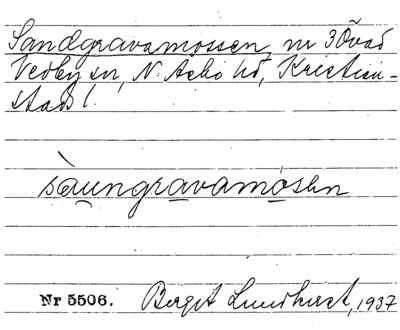 Sandgravamossen, nr 3 Övad
Vedby sn, N. Åsbo hd, Kristian-
stads l.
sàungravamósen
Nr 5506. Bergit Lundkvist, 1937